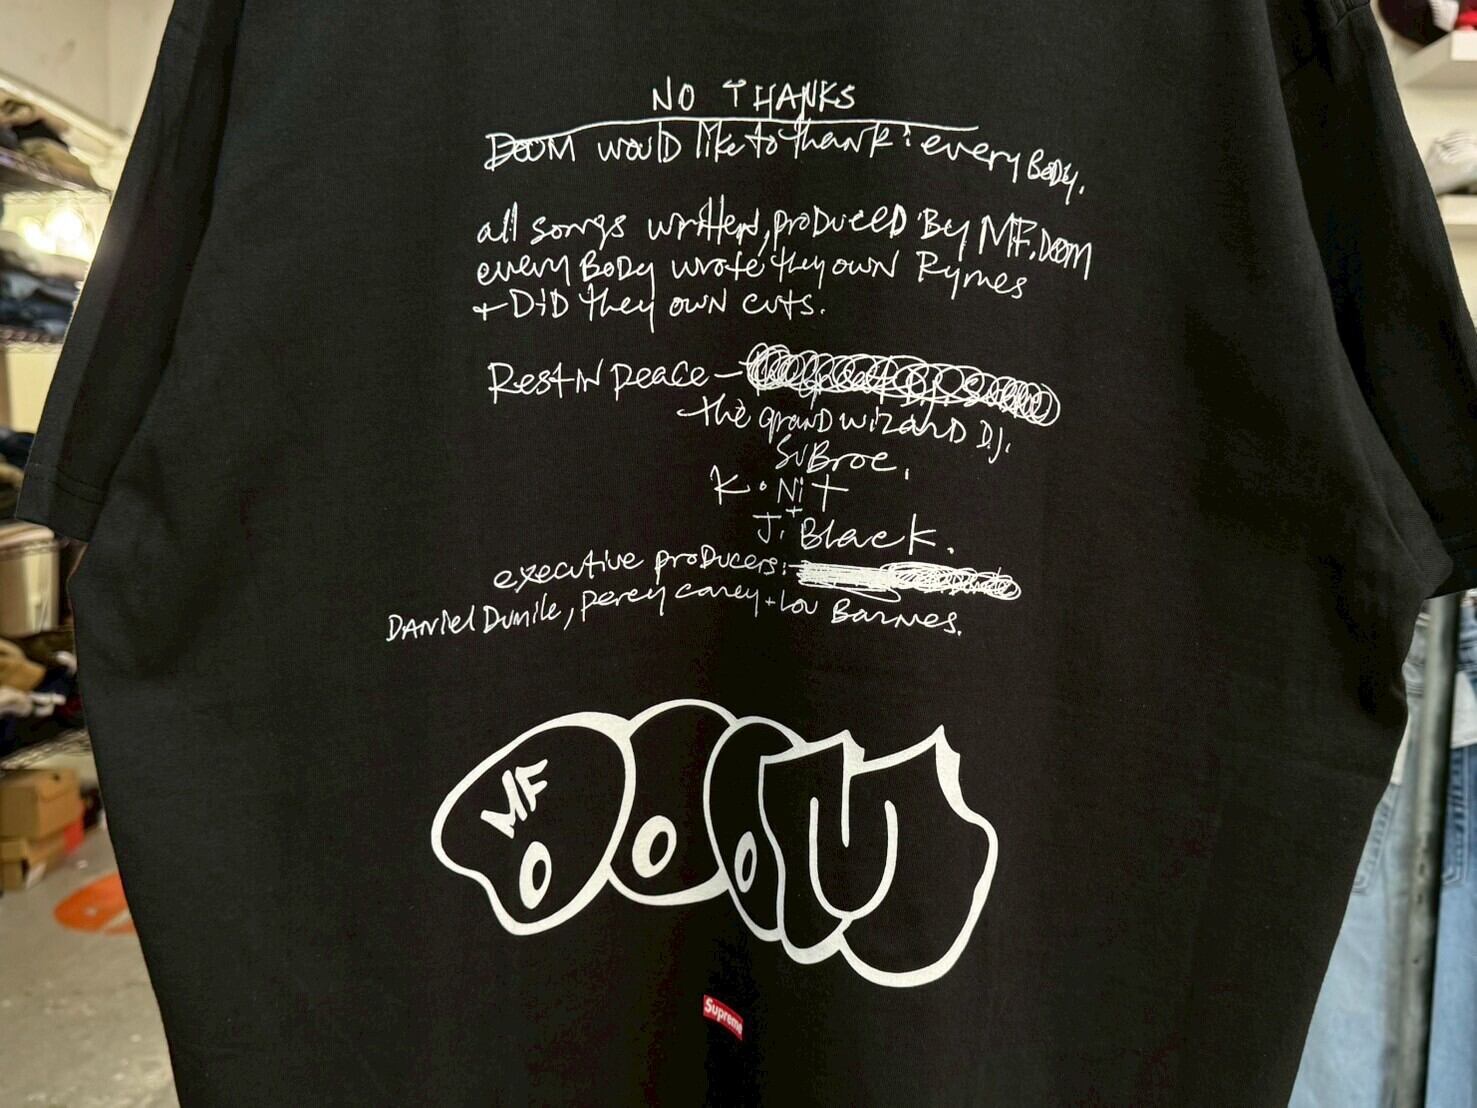 NO THANKS
DOOM would like to thank: every BODY.
all songs written, proDuceD By MF. DOOM
every BODy wrote they own Rymes
+ DiD they own cuts.
Rest iN peace -
the granD wizarD D.J.
SuBroc,
K. Nit
+
J. Black.
executive proDucers:
DANiel Dumile, percy carey + Lou BarNes.
MF
DOOM
Supreme